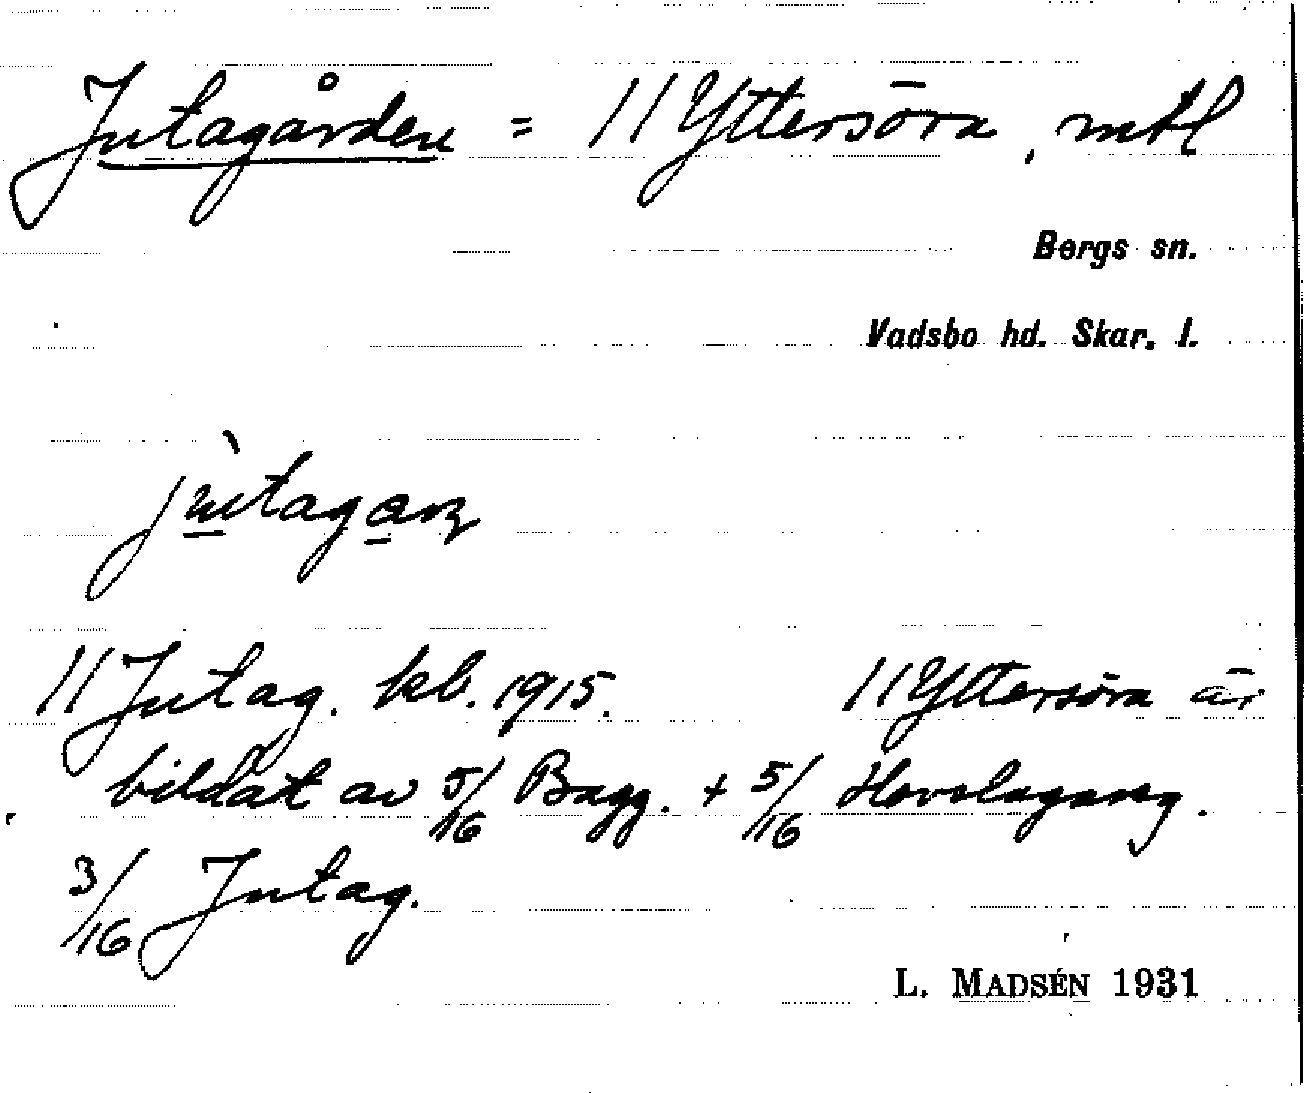 Jutagården = 11 Yttersöra, mtl
Bergs sn.
Vadsbo hd. Skar. l.
jùtagaɳ
11 Jutag. kb. 1915. 11 Yttersöra är
bildat av 5/16 Bagg. + 5/16
3/16 Jutag.
L. MADSÉN 1931